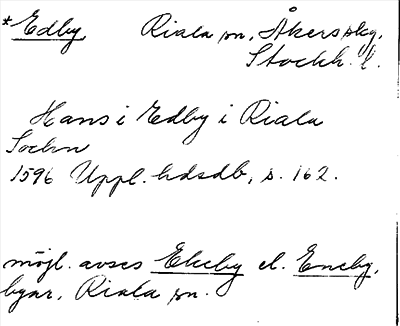 *Edby Riala sn, Åkers skg,
Stockh. l.
Hans i Edby i Riala
Sochn
1596 Uppl. hdsdb, s. 162.
möjl. avses Ekeby el. Eneby,
byar, Riala sn.